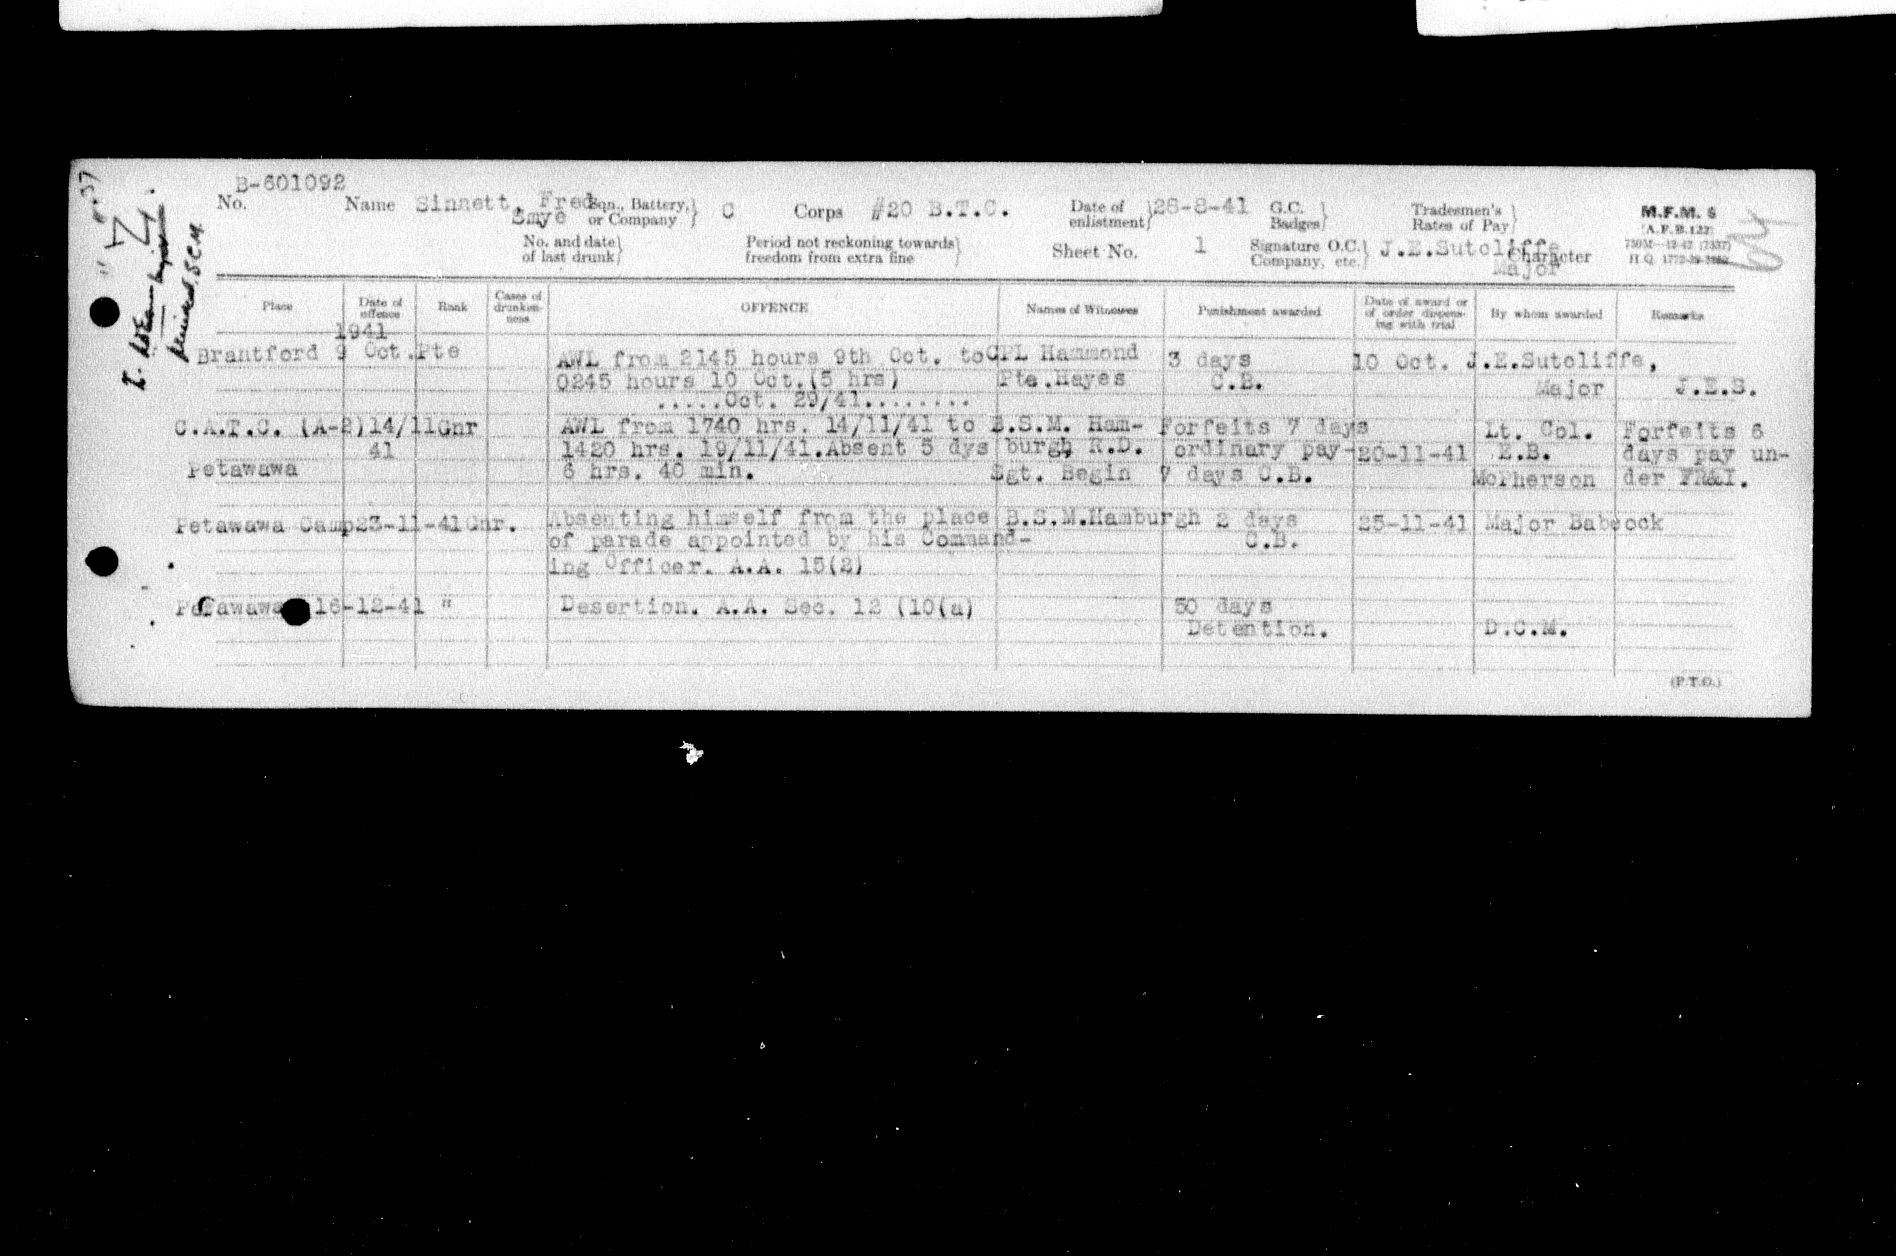 B-601092
No. Name Sinnett, Fred Sqn., Battery, or Company} C Corps #20 B.T.C. Date of enlistment} 28-8-41 G.C. Badges} Tradesmen's Rates of Pay} M.F.M. 6
Smye (A.F.B.122)
No. and date of last drunk} Period not reckoning towards freedom from extra fine} Sheet No. 1 Signature O.C. Company, etc.} J.E.Sutcliffe Character
Major H.Q.
Place Date of offence Rank Cases of drunkenness OFFENCE Names of Witnesses Punishment awarded Date of award or of order dispensing with trial By whom awarded Remarks
1941
Brantford 9 Oct. Pte AWL from 2145 hours 9th Oct. to CPL Hammond 3 days 10 Oct. J.E.Sutcliffe,
0245 hours 10 Oct.(5 hrs) Pte.Hayes C.B. Major J.E.S.
.....Oct. 29/41........
C.A.T.C. (A-2) 14/11 Gnr AWL from 1740 hrs. 14/11/41 to B.S.M. Ham- Forfeits 7 days Lt. Col. Forfeits 6
41 1420 hrs. 19/11/41.Absent 5 dys burgh R.D. ordinary pay- 20-11-41 E.B. days pay un-
Petawawa 6 hrs. 40 min. Sgt. Begin 7 days C.B. McPherson der FR&I.
Petawawa Camp 23-11-41 Gnr. Absenting himself from the place B.S.M.Hamburgh 2 days 25-11-41 Major Babcock
of parade appointed by his Command- C.B.
ing Officer. A.A. 15(2)
Petawawa 16-12-41 " Desertion. A.A. Sec. 12 (10(a) 50 days
Detention. D.C.M.
(P.T.O.)